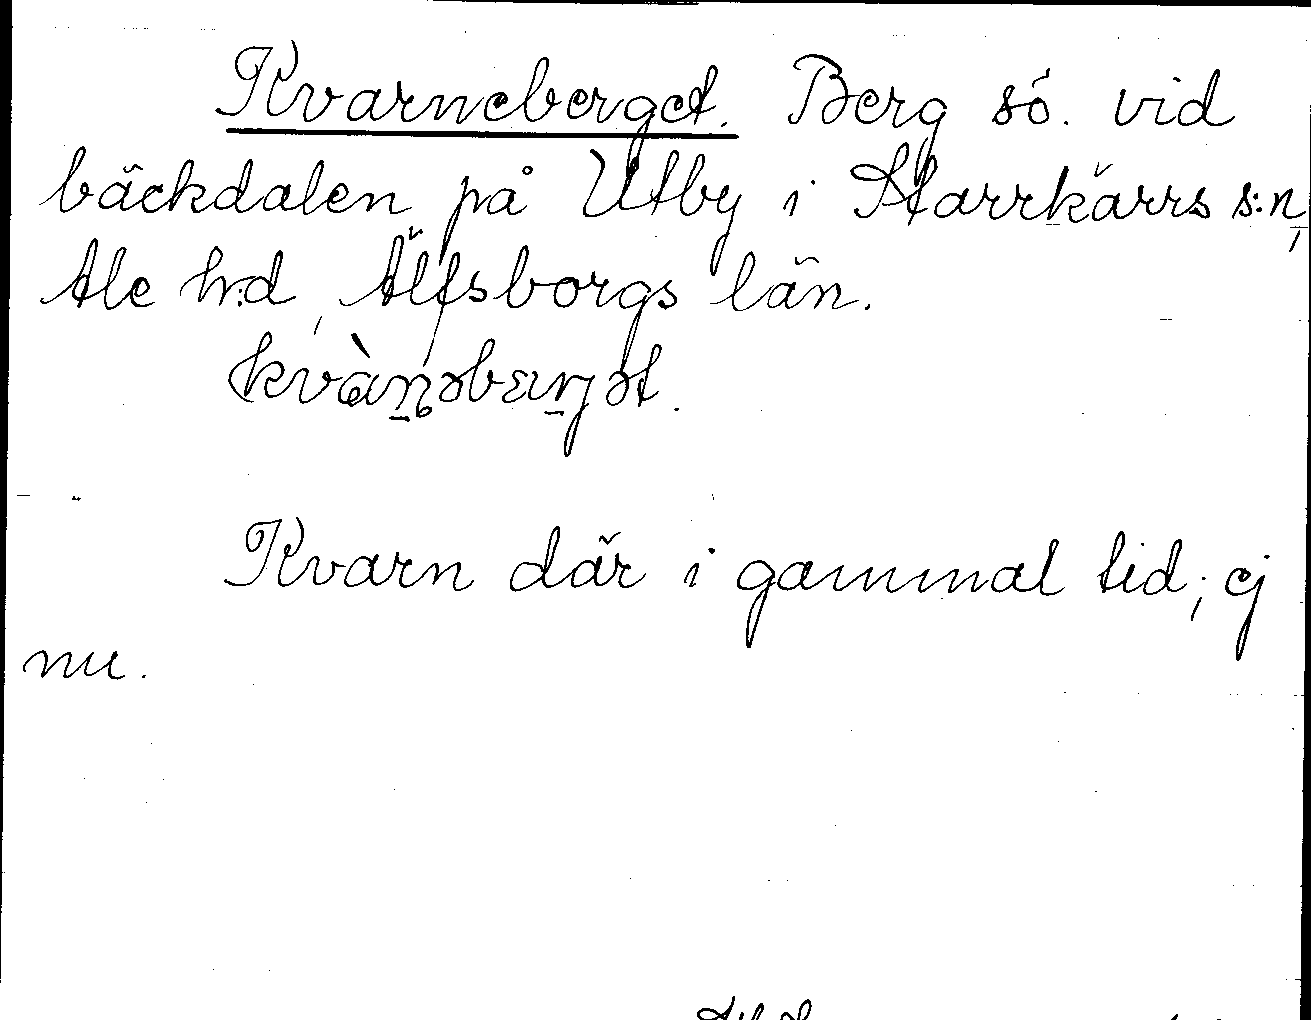 Kvarneberget. Berg sö. vid
bäckdalen på Utby i Starrkärrs s:n,
Ale h:d, Älfsborgs län.
Kvarn där i gammal tid; ej
nu.